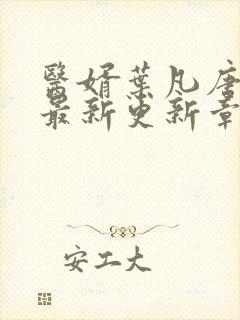 醫婿葉凡唐
最新更新章
安工大